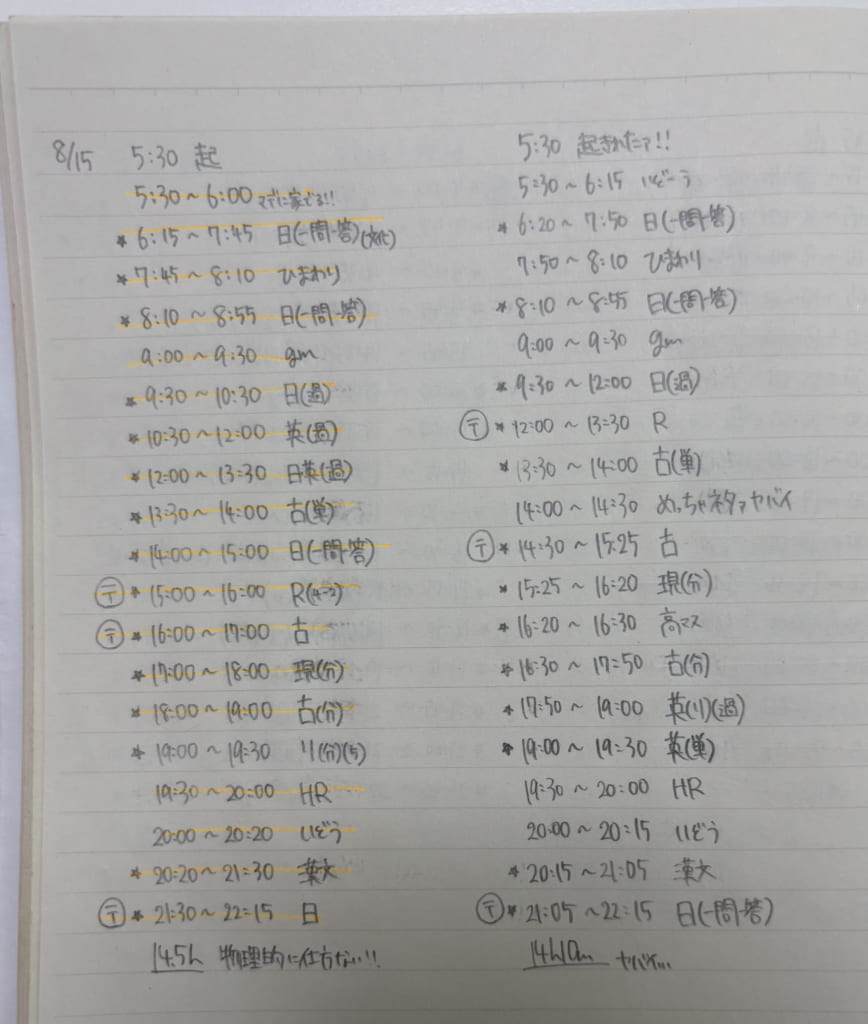 8/15 5:30 起
5:30～6:00 マデに家でる!!
* 6:15～7:45 日(一問一答)(文化)
* 7:45～8:10 ひまわり
* 8:10～8:55 日(一問一答)
9:00～9:30 gm
* 9:30～10:30 日(過)
* 10:30～12:00 英(過)
* 12:00～13:30 日英(過)
* 13:30～14:00 古(単)
* 14:00～15:00 日(一問一答)
〒 * 15:00～16:00 R
〒 * 16:00～17:00 古
* 17:00～18:00 現(分)
* 18:00～19:00 古(分)
* 19:00～19:30 リ(分)
19:30～20:00 HR
20:00～20:20 いどう
* 20:20～21:30 漢文
〒 * 21:30～22:15 日
14.5h 物理的に仕方ない!!
5:30 起きれたァ!!
5:30～6:15 いどーう
* 6:20～7:50 日(一問一答)
7:50～8:10 ひまわり
* 8:10～8:55 日(一問一答)
9:00～9:30 gm
* 9:30～12:00 日(過)
〒 * 12:00～13:30 R
* 13:30～14:00 古(単)
14:00～14:30 めっちゃネタァヤバイ
〒 * 14:30～15:25 古
* 15:25～16:20 現(分)
* 16:20～16:30 高マス
* 16:30～17:50 古(分)
* 17:50～19:00 英(リ)(過)
* 19:00～19:30 英(単)
19:30～20:00 HR
20:00～20:15 いどう
* 20:15～21:05 漢文
〒 * 21:05～22:15 日(一問一答)
14h10m ヤバイ...